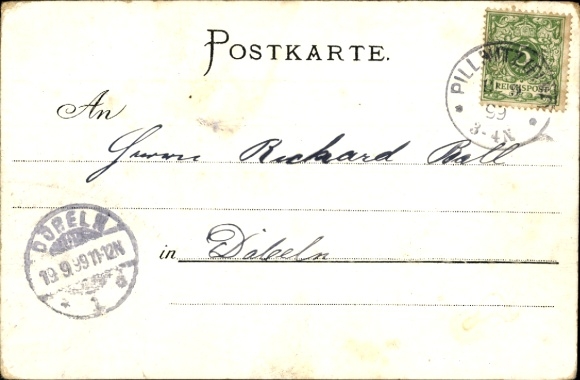 POSTKARTE.
5
REICHSPOST
PILLNITZ
99
3-4N
An
Herrn Richard Ball
DÖBELN
19.9.99 11-12N
* 1 d
in Döbeln